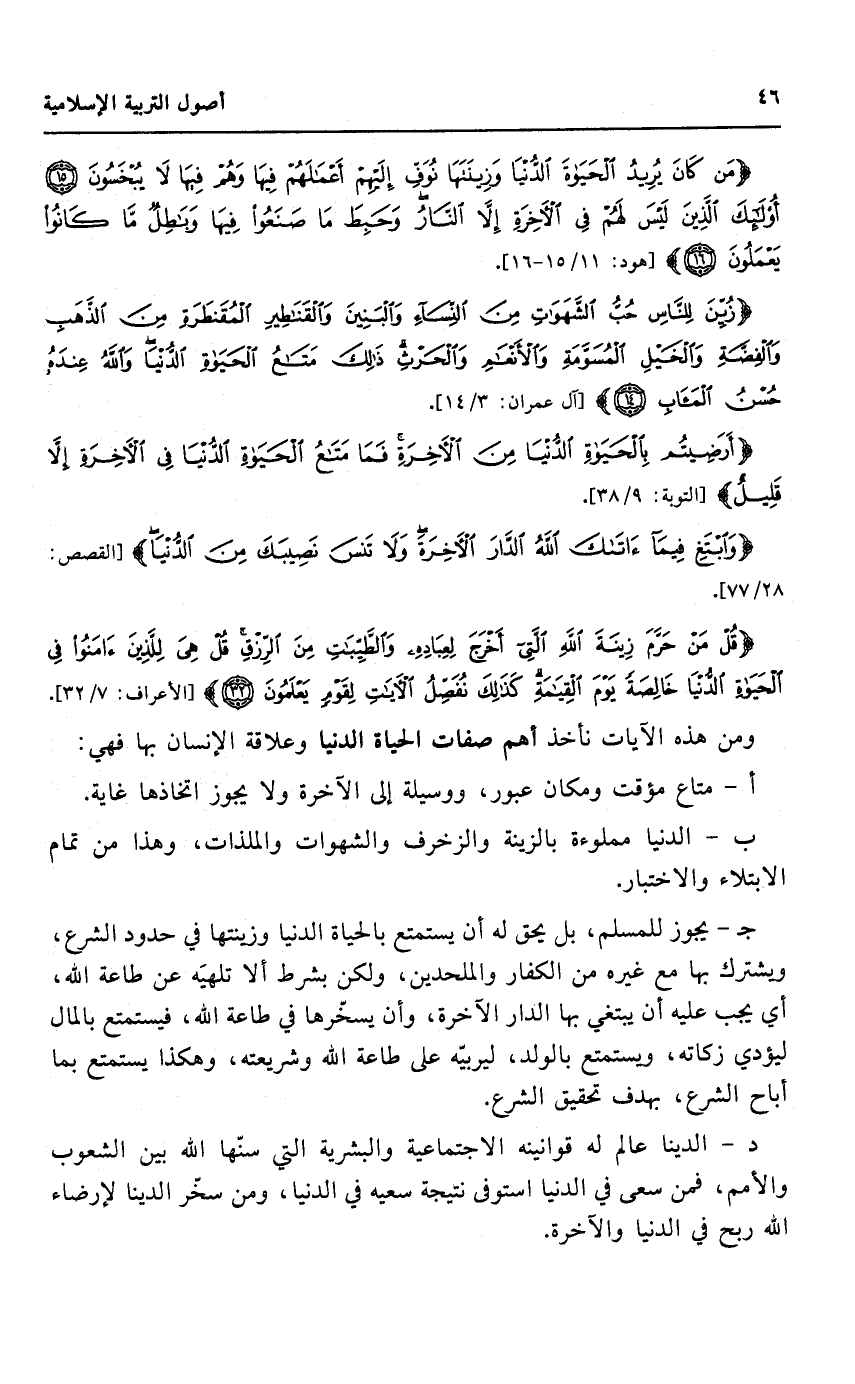 ٤٦
أصول التربية الإسلامية
﴿مَن كَانَ يُرِيدُ ٱلْحَيَوٰةَ ٱلدُّنْيَا وَزِينَتَهَا نُوَفِّ إِلَيْهِمْ أَعْمَٰلَهُمْ فِيهَا وَهُمْ فِيهَا لَا يُبْخَسُونَ ۝١٥
أُوْلَٰٓئِكَ ٱلَّذِينَ لَيْسَ لَهُمْ فِى ٱلْأَخِرَةِ إِلَّا ٱلنَّارُ ۖ وَحَبِطَ مَا صَنَعُواْ فِيهَا وَبَٰطِلٌ مَّا كَانُواْ
يَعْمَلُونَ ۝١٦﴾ [هود: ١١/ ١٥-١٦].
﴿زُيِّنَ لِلنَّاسِ حُبُّ ٱلشَّهَوَٰتِ مِنَ ٱلنِّسَآءِ وَٱلْبَنِينَ وَٱلْقَنَٰطِيرِ ٱلْمُقَنطَرَةِ مِنَ ٱلذَّهَبِ
وَٱلْفِضَّةِ وَٱلْخَيْلِ ٱلْمُسَوَّمَةِ وَٱلْأَنْعَٰمِ وَٱلْحَرْثِ ۗ ذَٰلِكَ مَتَٰعُ ٱلْحَيَوٰةِ ٱلدُّنْيَا ۖ وَٱللَّهُ عِندَهُۥ
حُسْنُ ٱلْمَـَٔابِ ۝١٤﴾ [آل عمران: ٣/ ١٤].
﴿أَرَضِيتُم بِٱلْحَيَوٰةِ ٱلدُّنْيَا مِنَ ٱلْأَخِرَةِ ۚ فَمَا مَتَٰعُ ٱلْحَيَوٰةِ ٱلدُّنْيَا فِى ٱلْأَخِرَةِ إِلَّا
قَلِيلٌ﴾ [التوبة: ٩/ ٣٨].
﴿وَٱبْتَغِ فِيمَآ ءَاتَىٰكَ ٱللَّهُ ٱلدَّارَ ٱلْأَخِرَةَ ۖ وَلَا تَنسَ نَصِيبَكَ مِنَ ٱلدُّنْيَا ۖ﴾ [القصص:
٢٨/ ٧٧].
﴿قُلْ مَنْ حَرَّمَ زِينَةَ ٱللَّهِ ٱلَّتِىٓ أَخْرَجَ لِعِبَادِهِۦ وَٱلطَّيِّبَٰتِ مِنَ ٱلرِّزْقِ ۚ قُلْ هِىَ لِلَّذِينَ ءَامَنُواْ فِى
ٱلْحَيَوٰةِ ٱلدُّنْيَا خَالِصَةً يَوْمَ ٱلْقِيَٰمَةِ ۗ كَذَٰلِكَ نُفَصِّلُ ٱلْأَيَٰتِ لِقَوْمٍ يَعْلَمُونَ ۝٣٢﴾ [الأعراف: ٧/ ٣٢].
ومن هذه الآيات نأخذ أهم صفات الحياة الدنيا وعلاقة الإنسان بها فهي:
أ - متاع مؤقت ومكان عبور، ووسيلة إلى الآخرة ولا يجوز اتخاذها غاية.
ب - الدنيا مملوءة بالزينة والزخرف والشهوات والملذات، وهذا من تمام
الابتلاء والاختبار.
جـ - يجوز للمسلم، بل يحق له أن يستمتع بالحياة الدنيا وزينتها في حدود الشرع،
ويشترك بها مع غيره من الكفار والملحدين، ولكن بشرط ألا تلهيَه عن طاعة الله،
أي يجب عليه أن يبتغي بها الدار الآخرة، وأن يسخّرها في طاعة الله، فيستمتع بالمال
ليؤدي زكاته، ويستمتع بالولد، ليربيّه على طاعة الله وشريعته، وهكذا يستمتع بما
أباح الشرع، بهدف تحقيق الشرع.
د - الدينا عالم له قوانينه الاجتماعية والبشرية التي سنّها الله بين الشعوب
والأمم، فمن سعى في الدنيا استوفى نتيجة سعيه في الدنيا، ومن سخّر الدينا لإرضاء
الله ربح في الدنيا والآخرة.